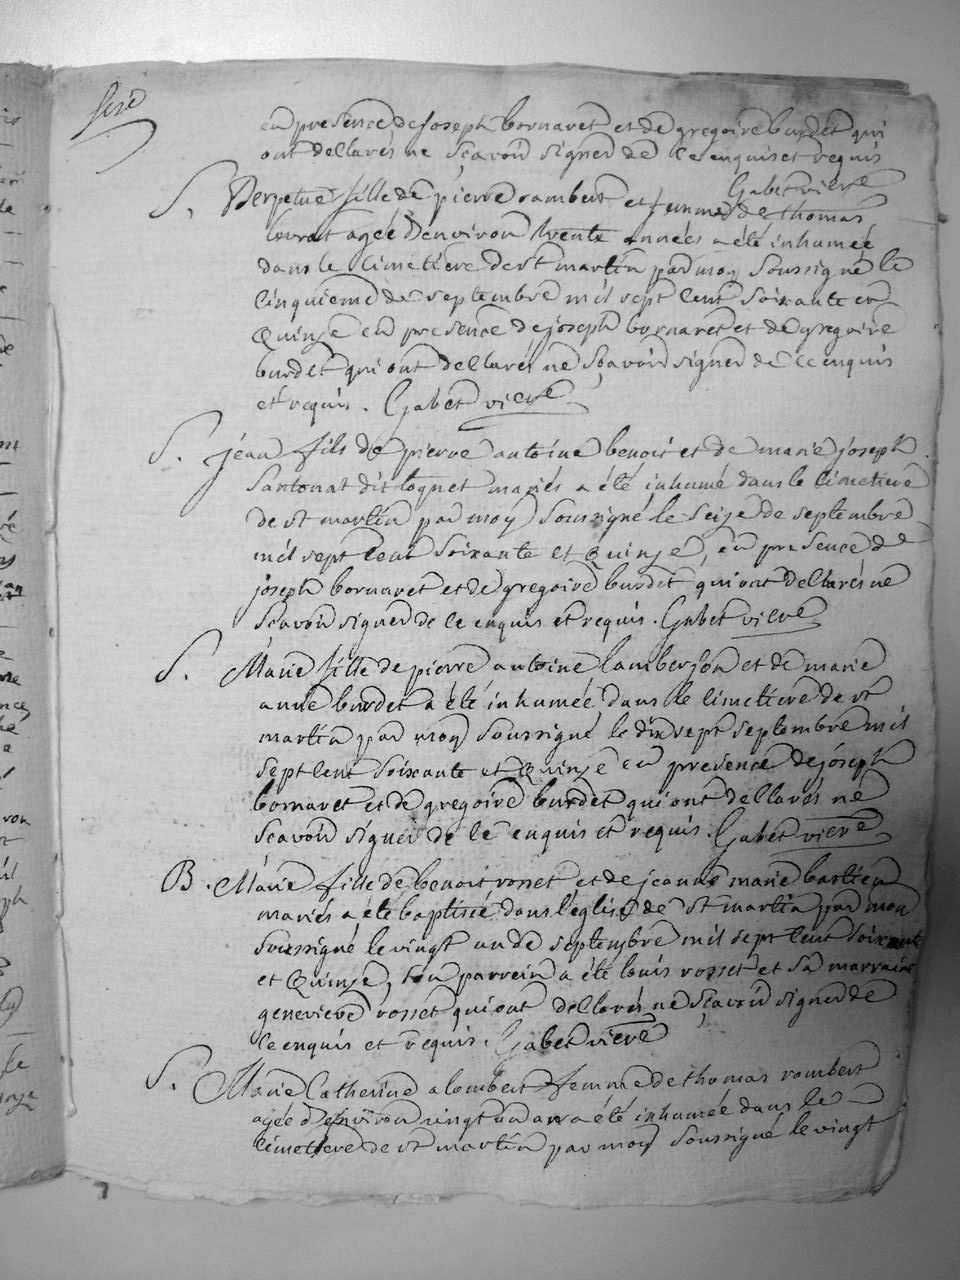 en presence de joseph bornaret et de gregoire burdet qui
ont dellarés ne sçavoir signer de ce enquis et requis
Gabet vicre
S. Perpetue fille de pierre rambert et femme de thomas
agée d'environ trente années a été inhumée
dans le cimetiere de st martin par moy soussigné le
cinquieme de septembre mil sept cent soixante et
Quinze en presence de joseph bornaret et de gregoire
burdet qui ont dellarés ne sçavoir signer de ce enquis
et requis. Gabet vicre
S. jean fils de pierre antoine benoit et de marie joseph
dit loquet mariés a été inhumé dans le cimetiere
de st martin par moy soussigné le seize de septembre
mil sept cent soixante et Quinze, en presence de
joseph bornaret et de gregoire burdet qui ont dellarés ne
sçavoir signer de ce enquis et requis. Gabet vicre
S. Marie fille de pierre antoine lamberson et de marie
anne burdet a été inhumée dans le cimetiere de st
martin par moy soussigné le dix sept septembre mil
sept cent soixante et Quinze en presence de joseph
bornaret et de gregoire burdet qui ont dellarés ne
sçavoir signer de ce enquis et requis. Gabet vicre
B. Marie fille de benoit rosset et de jeanne marie bastien
mariés a été baptisée dans l'eglise de st martin par moy
soussigné le vingt un de septembre mil sept cent soixante
et Quinze, son parrein a été louis rosset et sa marraine
genevieve rosset qui ont dellarés ne sçavoir signer de
ce enquis et requis. Gabet vicre
S. Marie Catherine alombert femme de thomas rombert
agée d'environ vingt un ans a été inhumée dans le
cimetiere de st martin par moy soussigné le vingt